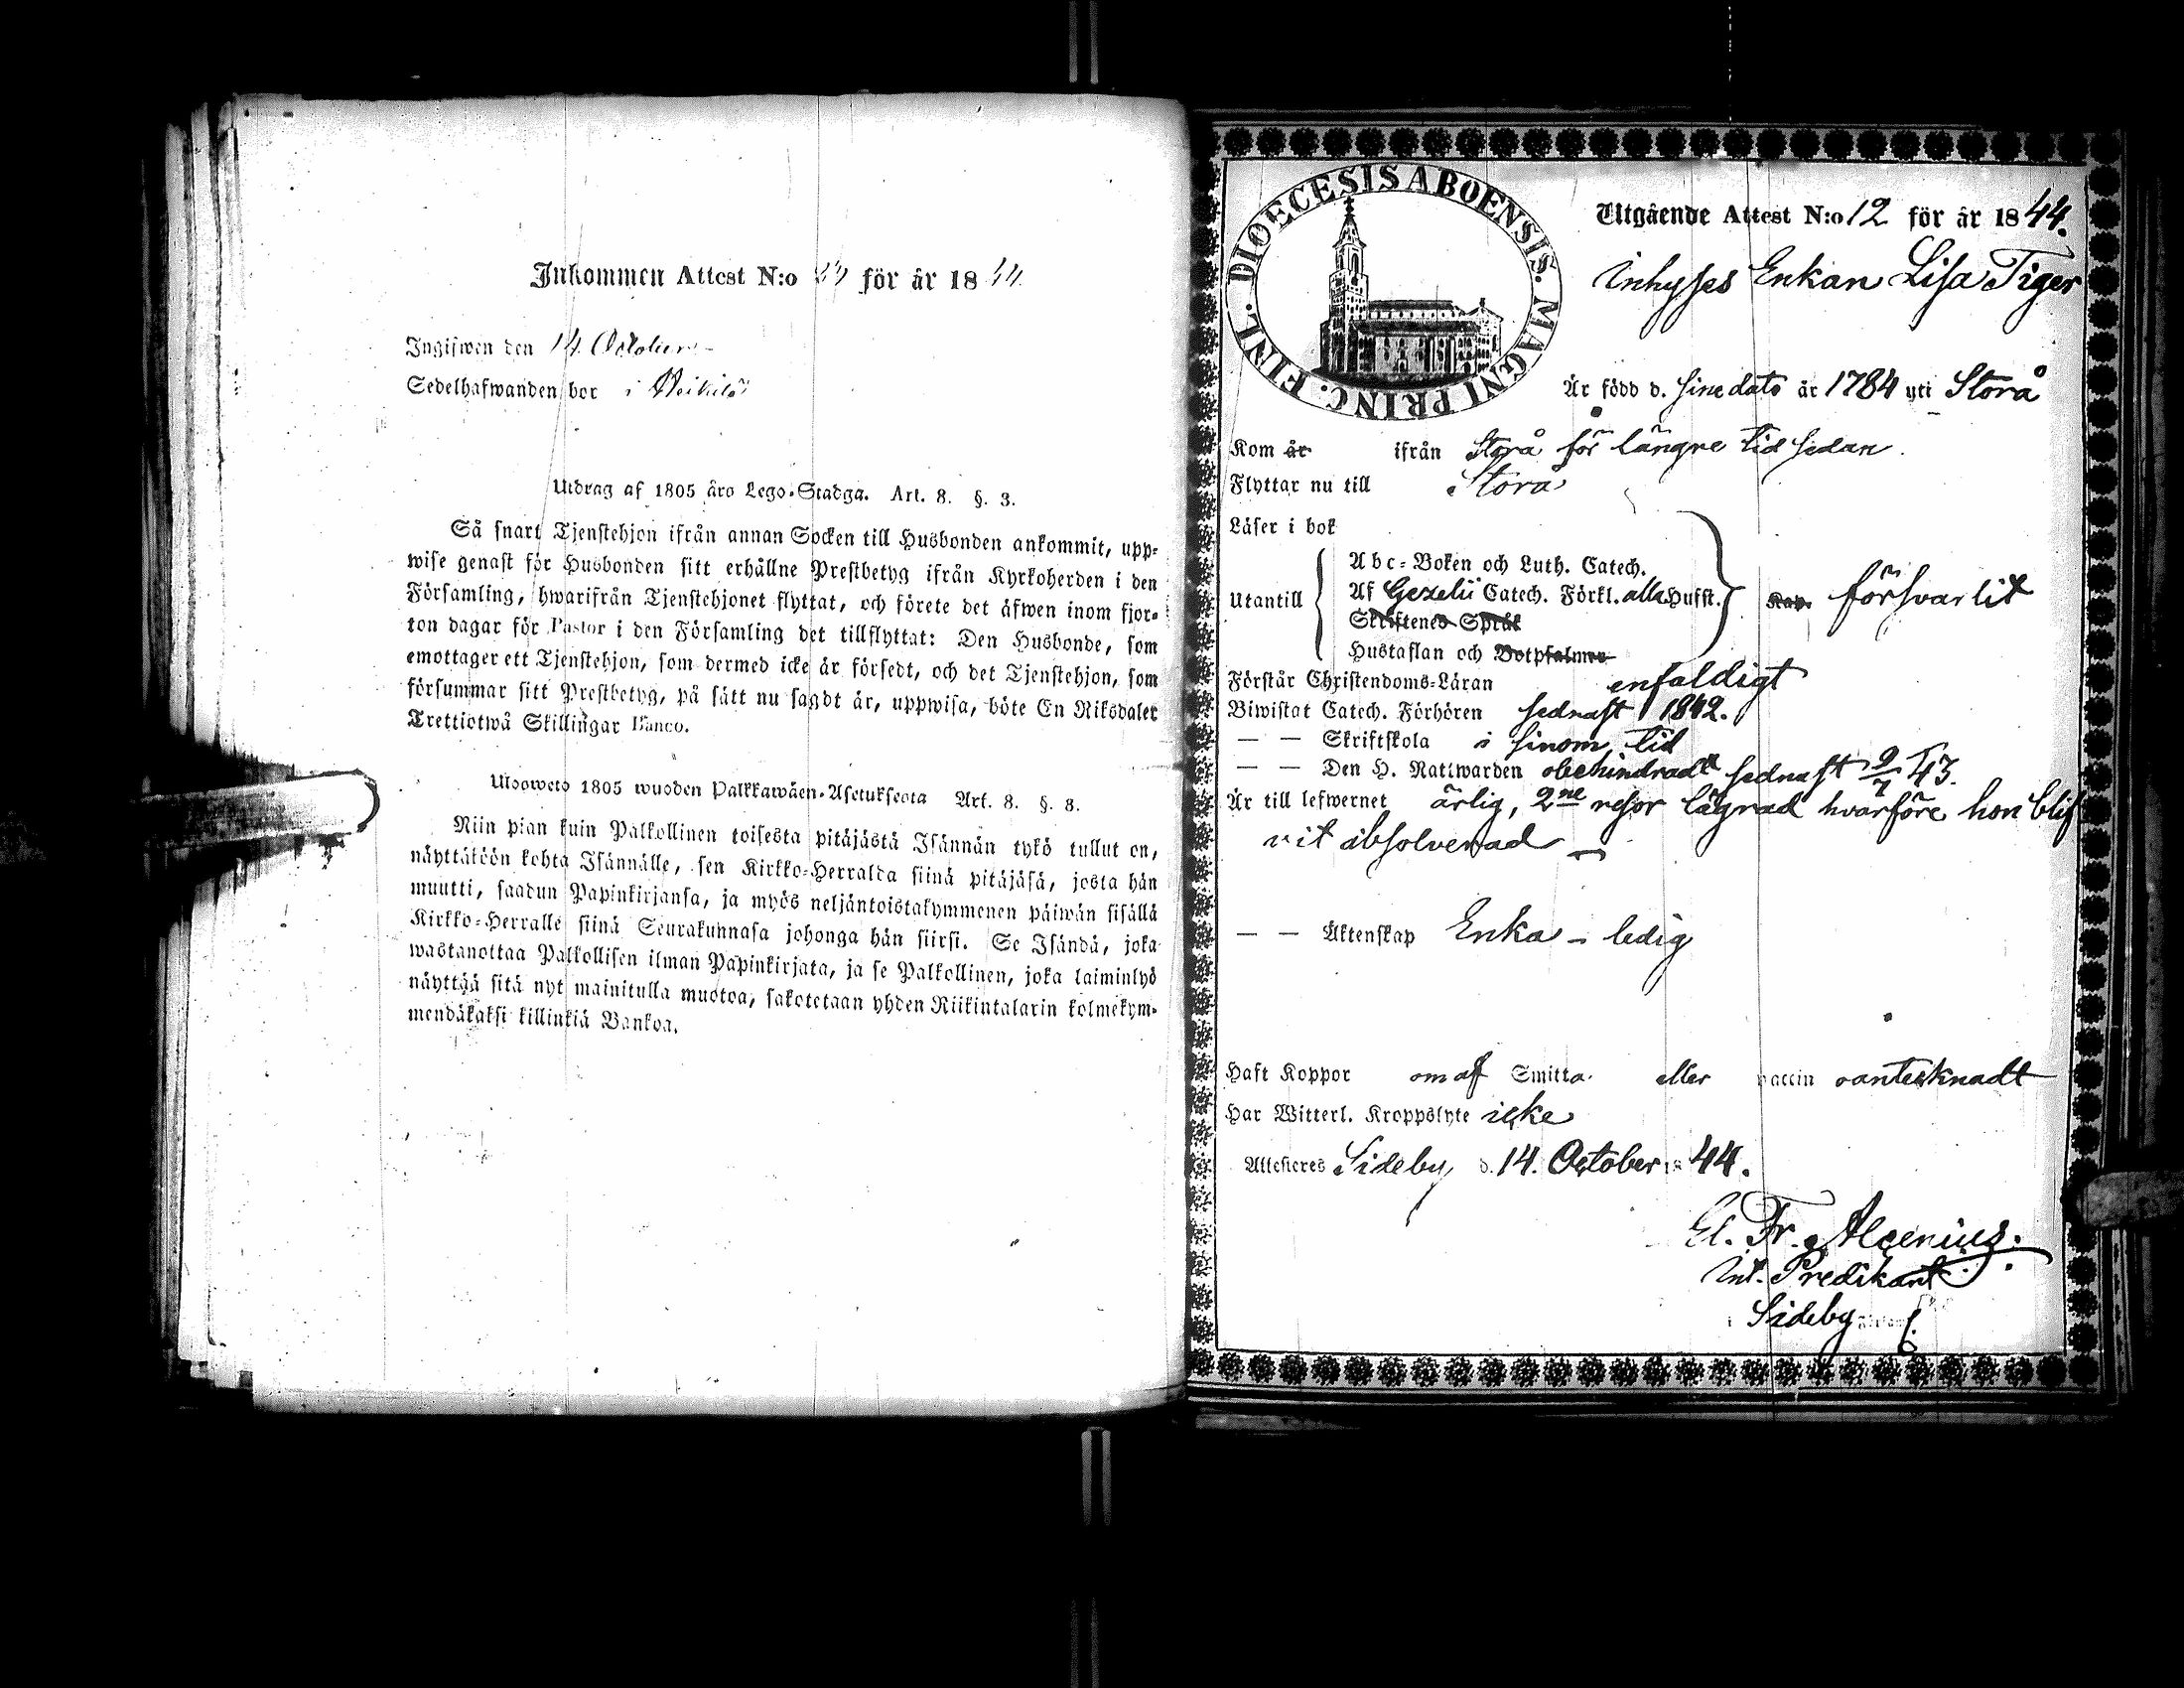 Inkommen Attest N:o för år 18 44
Ingifwen den 14 October
Sedelhafwanden bor i
Utdrag af 1805 års Lego-Stadga. Art. 8. §. 3.
Så snart Tjenstehjon ifrån annan Socken till Husbonden ankommit, upp-
wise genast för Husbonden sitt erhållne Prestbetyg ifrån Kyrkoherden i den
Församling, hwarifrån Tjenstehjonet flyttat, och förete det äfwen inom fjor-
ton dagar för Pastor i den Församling det tillflyttat: Den Husbonde, som
emottager ett Tjenstehjon, som dermed icke är försedt, och det Tjenstehjon, som
försummar sitt Prestbetyg, på sätt nu sagdt är, uppwisa, böte En Riksdaler
Trettiotwå Skillingar Banco.
Ulosweto 1805 wuoden Palkkawäen-Asetuksesta Art. 8. §. 3.
Niin pian kuin Palkollinen toisesta pitäjästä Isännän tykö tullut on,
näyttäköön kohta Isännälle, sen Kirkko-Herralda siinä pitäjäsä, josta hän
muutti, saadun Papinkirjansa, ja myös neljäntoistakymmenen päiwän sisällä
Kirkko-Herralle siinä Seurakunnasa johonga hän siirsi. Se Isändä, joka
wastanottaa Palkollisen ilman Papinkirjata, ja se Palkollinen, joka laiminlyö
näyttää sitä nyt mainitulla muotoa, sakotetaan yhden Riikintalarin kolmekym-
mendäkaksi killinkiä Bankoa.
DIOECESIS ABOENSIS. MAGNI PRINC. FINL.
Utgående Attest N:o 12 för år 1844.
Inhyses Enkan Lisa Tiger
Är född d. sine dato år 1784 uti Storå
Kom år ifrån Storå för längre tid sedan.
Flyttar nu till Storå
Läser i bok
Abc-Boken och Luth. Catech.
Utantill Af Gezelii Catech. Förkl. alla Hufst. Kap. försvarlit
Skriftenes Språk
Hustaflan och Botpsalmer
Förstår Christendoms-Läran enfaldigt
Biwistat Catech. Förhören sednast 1842.
— — Skriftskola i sinom tid
— — Den H. Nattwarden obehindradt sednast 9/7 43.
Är till lefwernet ärlig, 2ne resor lägrad hvarföre hon blif
vit absolverad
— — Äktenskap Enka - ledig
Haft Koppor om af Smitta eller vaccin oantecknadt
Har Witterl. Kroppslyte icke
Attesteres Sideby d. 14. October 1844.
El. Fr. Alcenius.
Int. Predikant
i Sideby